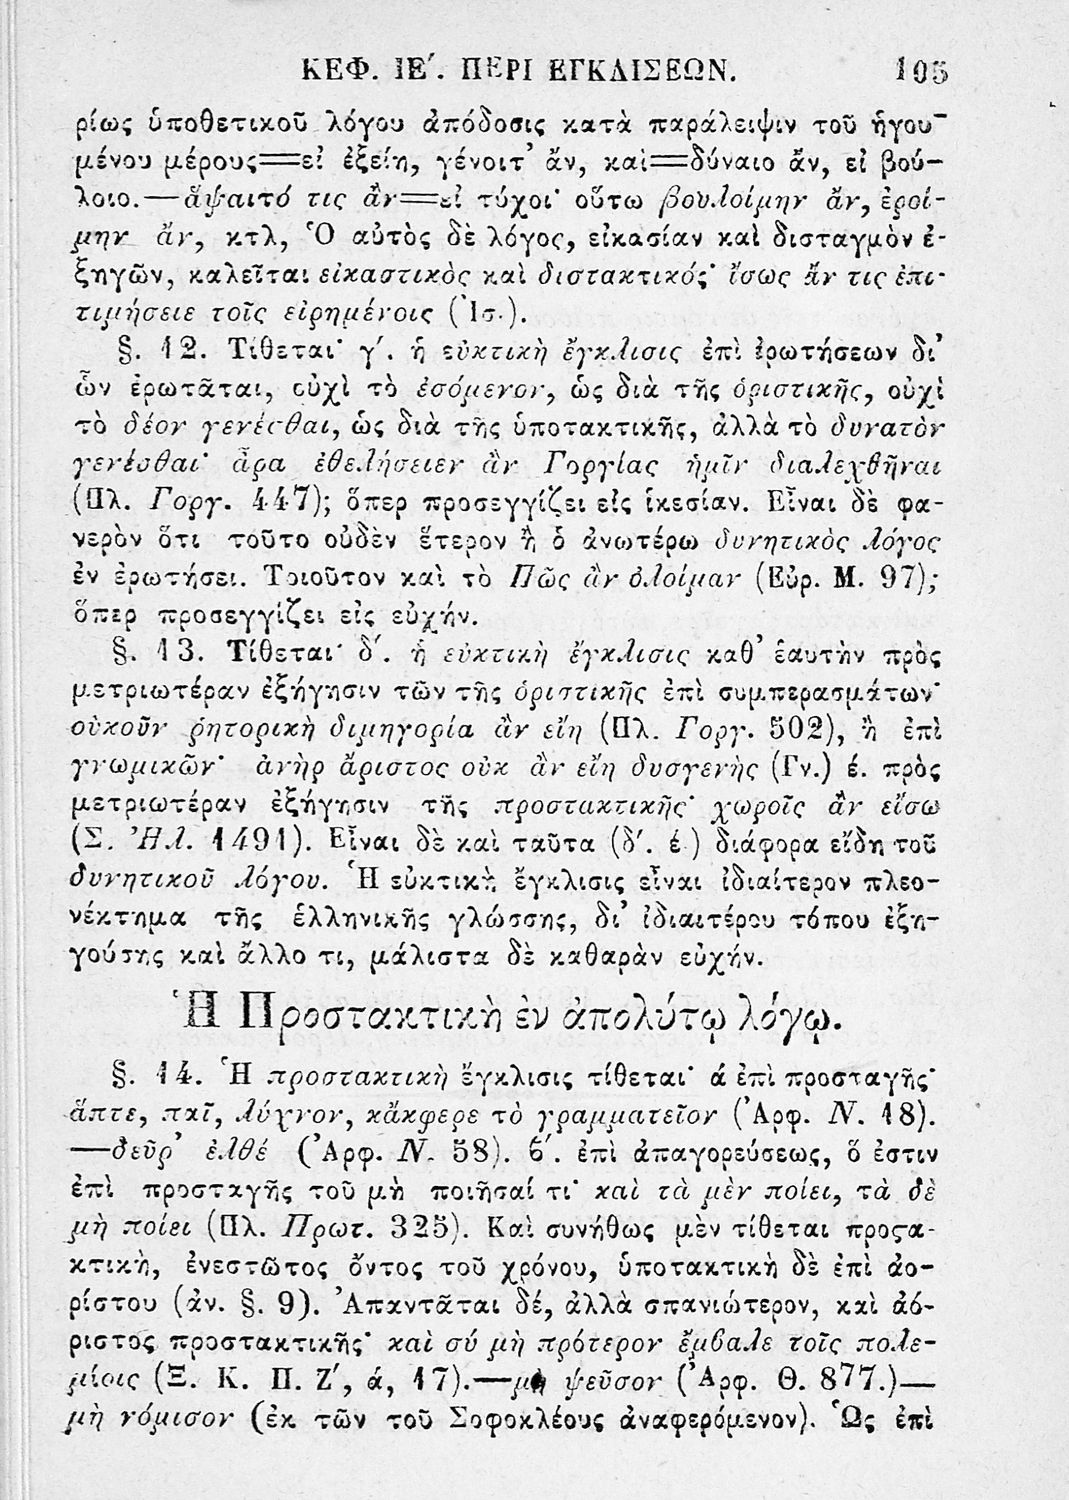 ΚΕΦ. ΙΕʹ. ΠΕΡΙ ΕΓΚΛΙΣΕΩΝ. 105
ρίως ὑποθετικοῦ λόγου ἀπόδοσις κατὰ παράλειψιν τοῦ ἡγου-
μένου μέρους=εἰ ἐξείη, γένοιτ’ ἄν, καὶ=δύναιο ἄν, εἰ βού-
λοιο.—ἅψαιτό τις ἂν=εἰ τύχοι· οὕτω βουλοίμην ἄν, ἐροί-
μην ἄν, κτλ, Ὁ αὐτὸς δὲ λόγος, εἰκασίαν καὶ δισταγμὸν ἐ-
ξηγῶν, καλεῖται εἰκαστικὸς καὶ διστακτικός· ἴσως ἄν τις ἐπι-
τιμήσειε τοῖς εἰρημένοις (Ἰσ.).
§. 12. Τίθεται· γʹ. ἡ εὐκτικὴ ἔγκλισις ἐπὶ ἐρωτήσεων δι’
ὧν ἐρωτᾶται, οὐχὶ τὸ ἐσόμενον, ὡς διὰ τῆς ὁριστικῆς, οὐχὶ
τὸ δέον γενέσθαι, ὡς διὰ τῆς ὑποτακτικῆς, ἀλλὰ τὸ δυνατὸν
γενέσθαι· ἆρα ἐθελήσειεν ἂν Γοργίας ἡμῖν διαλεχθῆναι
(Πλ. Γοργ. 447); ὅπερ προσεγγίζει εἰς ἱκεσίαν. Εἶναι δὲ φα-
νερὸν ὅτι τοῦτο οὐδὲν ἕτερον ἢ ὁ ἀνωτέρω δυνητικὸς λόγος
ἐν ἐρωτήσει. Τοιοῦτον καὶ τὸ Πῶς ἂν ὀλοίμαν (Εὐρ. Μ. 97);
ὅπερ προσεγγίζει εἰς εὐχήν.
§. 13. Τίθεται· δʹ. ἡ εὐκτικὴ ἔγκλισις καθ’ ἑαυτὴν πρὸς
μετριωτέραν ἐξήγησιν τῶν τῆς ὁριστικῆς ἐπὶ συμπερασμάτων·
οὐκοῦν ῥητορικὴ διμηγορία ἂν εἴη (Πλ. Γοργ. 502), ἢ ἐπὶ
γνωμικῶν· ἀνὴρ ἄριστος οὐκ ἂν εἴη δυσγενὴς (Γν.) έ. πρὸς
μετριωτέραν ἐξήγησιν τῆς προστακτικῆς· χωροῖς ἂν εἴσω
(Σ. Ἠλ. 1491). Εἶναι δὲ καὶ ταῦτα (δʹ. έ.) διάφορα εἴδη τοῦ
δυνητικοῦ λόγου. Ἡ εὐκτικὴ ἔγκλισις εἶναι ἰδιαίτερον πλεο-
νέκτημα τῆς ἑλληνικῆς γλώσσης, δι’ ἰδιαιτέρου τόπου ἐξη-
γούσης καὶ ἄλλο τι, μάλιστα δὲ καθαρὰν εὐχήν.
Ἡ Προστακτικὴ ἐν ἀπολύτῳ λόγῳ.
§. 14. Ἡ προστακτικὴ ἔγκλισις τίθεται· ά ἐπὶ προσταγῆς·
ἅπτε, παῖ, λύχνον, κἄκφερε τὸ γραμματεῖον (Ἀρφ. Ν. 18).
—δεῦρ’ ἐλθέ (Ἀρφ. Ν. 58). ϐʹ. ἐπὶ ἀπαγορεύσεως, ὅ ἐστιν
ἐπὶ προσταγῆς τοῦ μὴ ποιῆσαί τι· καὶ τὰ μὲν ποίει, τὰ δὲ
μὴ ποίει (Πλ. Πρωτ. 325). Καὶ συνήθως μὲν τίθεται προϛα-
κτικὴ, ἐνεστῶτος ὄντος τοῦ χρόνου, ὑποτακτικὴ δὲ ἐπὶ ἀο-
ρίστου (ἀν. §. 9). Ἀπαντᾶται δέ, ἀλλὰ σπανιώτερον, καὶ ἀό-
ριστος προστακτικῆς· καὶ σύ μὴ πρότερον ἔμϐαλε τοῖς πολε-
μίοις (Ξ. Κ. Π. Ζʹ, ά, 17).—μὴ ψεῦσον (Ἀρφ. Θ. 877.)—
μὴ νόμισον (ἐκ τῶν τοῦ Σοφοκλέους ἀναφερόμενον). Ὡς ἐπὶ